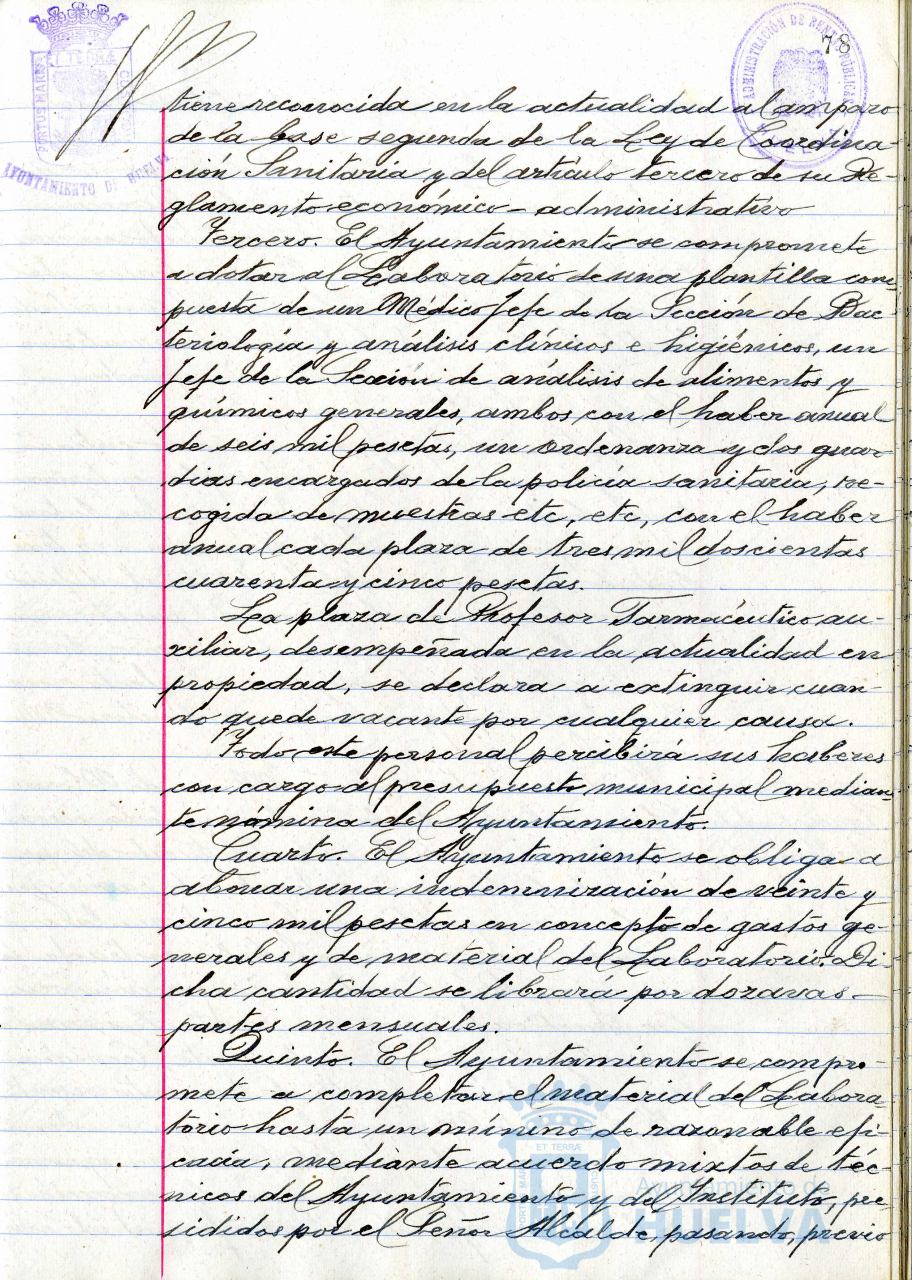 78
PORTUS MARIS
ET TERRÆ
AYUNTAMIENTO DE HUELVA
ADMINISTRACIÓN DE RENTAS PÚBLICAS
tiene reconocida en la actualidad al amparo
de la base segunda de la Ley de Coordina-
ción Sanitaria y del artículo tercero de su Re-
glamento económico-administrativo
Tercero. El Ayuntamiento se compromete
a dotar al Laboratorio de una plantilla com-
puesta de un Médico Jefe de la Sección de Bac
teriología y análisis clínicos e higiénicos, un
Jefe de la Sección de análisis de alimentos y
químicos generales, ambos con el haber anual
de seis mil pesetas, un ordenanza y dos guar
dias encargados de la policía sanitaria, re-
cogida de muestras etc, etc, con el haber
anual cada plaza de tres mil doscientas
cuarenta y cinco pesetas.
La plaza de Profesor Farmacéutico au-
xiliar, desempeñada en la actualidad en
propiedad, se declara a extinguir cuan-
do quede vacante por cualquier causa.
Todo este personal percibirá sus haberes
con cargo al presupuesto municipal median-
te nómina del Ayuntamiento.
Cuarto. El Ayuntamiento se obliga a
abonar una indemnización de veinte y
cinco mil pesetas en concepto de gastos ge-
nerales y de material del Laboratorio. Di-
cha cantidad se librará por dozavas-
partes mensuales.
Quinto. El Ayuntamiento se compro-
mete a completar el material del Labora-
torio hasta un mínino de razonable efi-
cacia, mediante acuerdo mixtos de téc-
nicos del Ayuntamiento y del Instituto, pre-
sididos por el Señor Alcalde, pasando, previo
ET TERRÆ
Ayuntamiento de
HUELVA